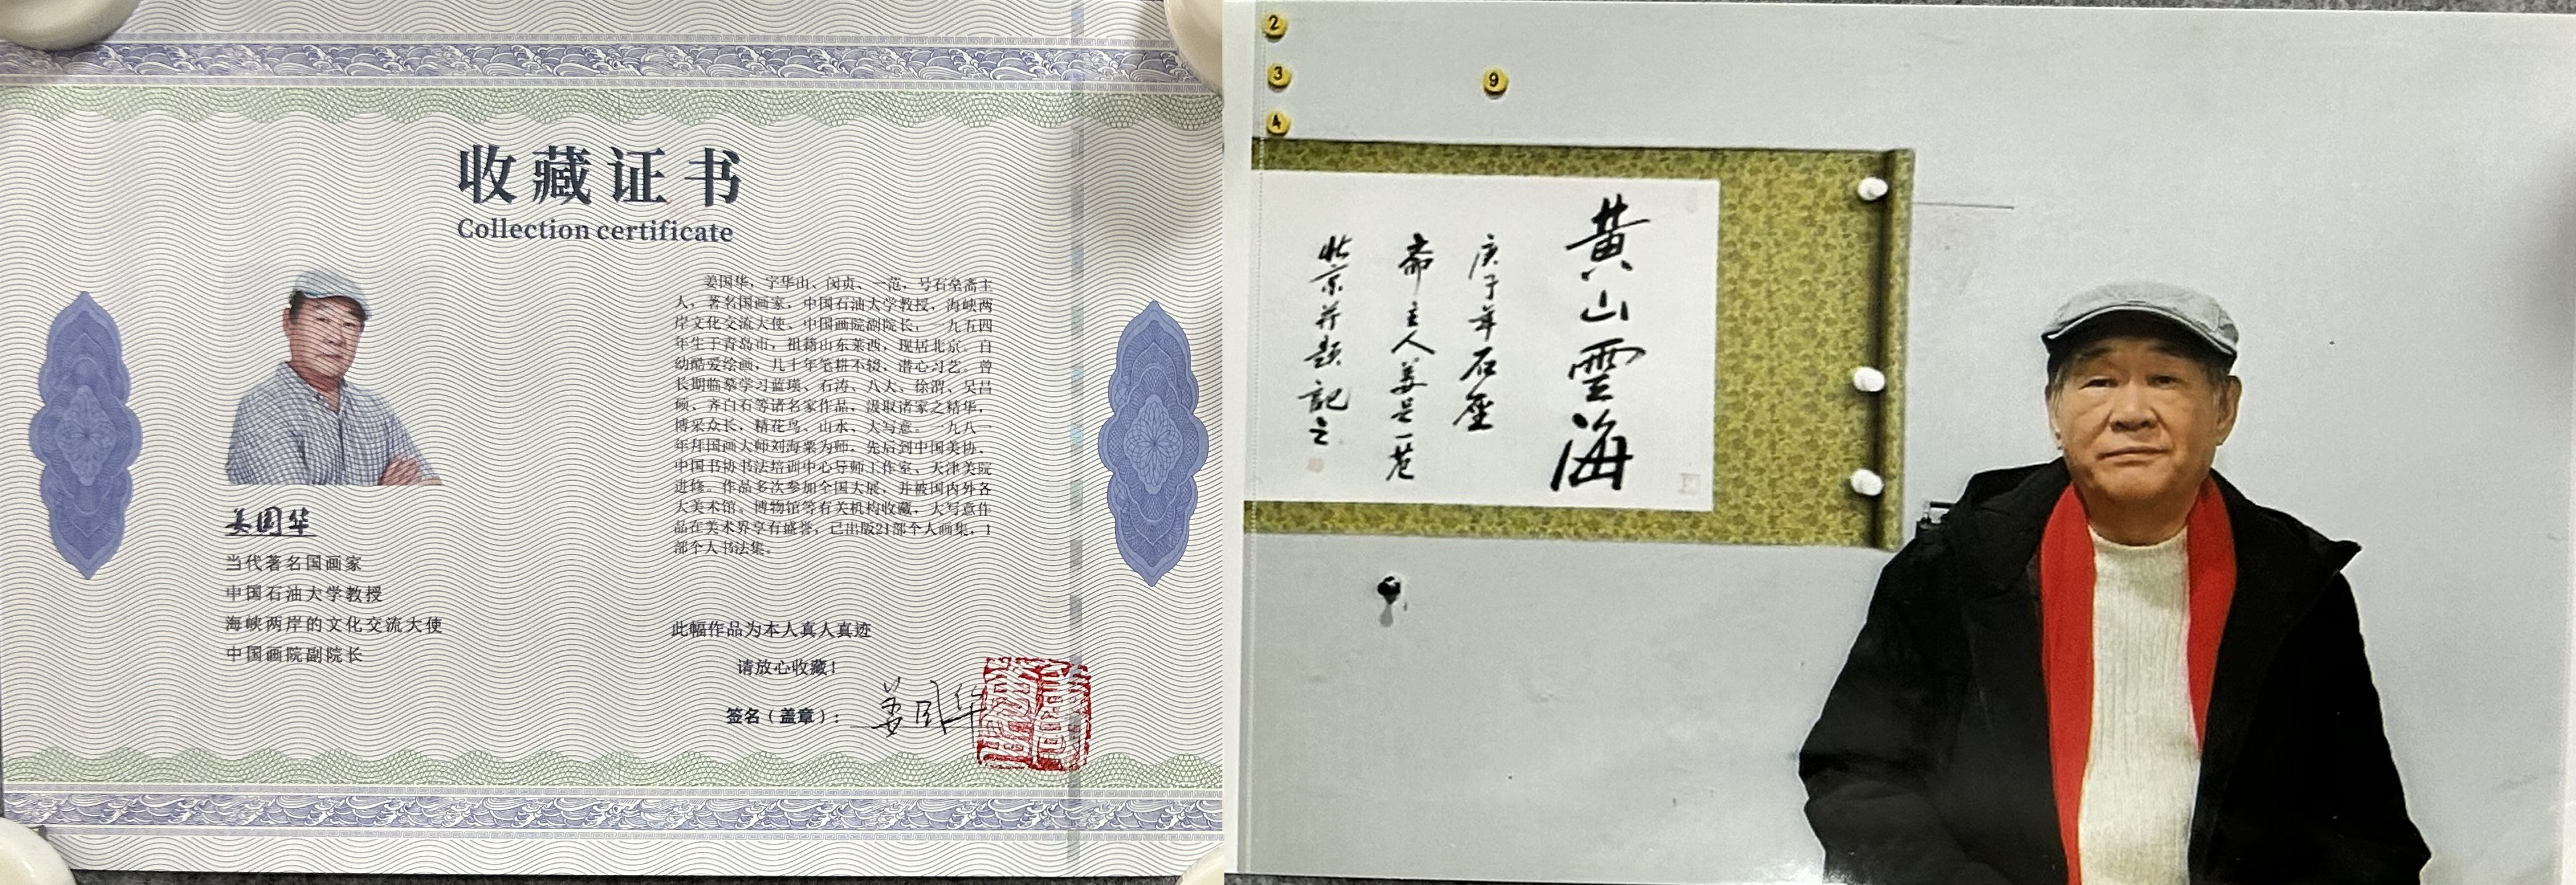 收藏证书
Collection certificate
姜国华
当代著名国画家
中国石油大学教授
海峡两岸的文化交流大使
中国画院副院长
姜国华，字华山、闵贞、一范，号石垒斋主
人，著名国画家，中国石油大学教授，海峡两
岸文化交流大使、中国画院副院长，一九五四
年生于青岛市，祖籍山东莱西，现居北京。自
幼酷爱绘画，几十年笔耕不辍，潜心习艺。曾
长期临摹学习蓝瑛、石涛、八大、徐渭、吴昌
硕、齐白石等诸名家作品，汲取诸家之精华，
博采众长，精花鸟、山水、大写意。一九八一
年拜国画大师刘海粟为师，先后到中国美协、
中国书协书法培训中心导师工作室、天津美院
进修。作品多次参加全国大展，并被国内外各
大美术馆、博物馆等有关机构收藏，大写意作
品在美术界享有盛誉，已出版21部个人画集，1
部个人书法集。
此幅作品为本人真人真迹
请放心收藏！
签名（盖章）：姜国华
2
3
4
9
黄山雲海
庚子年石垒
斋主人姜是一范
北京并题記之